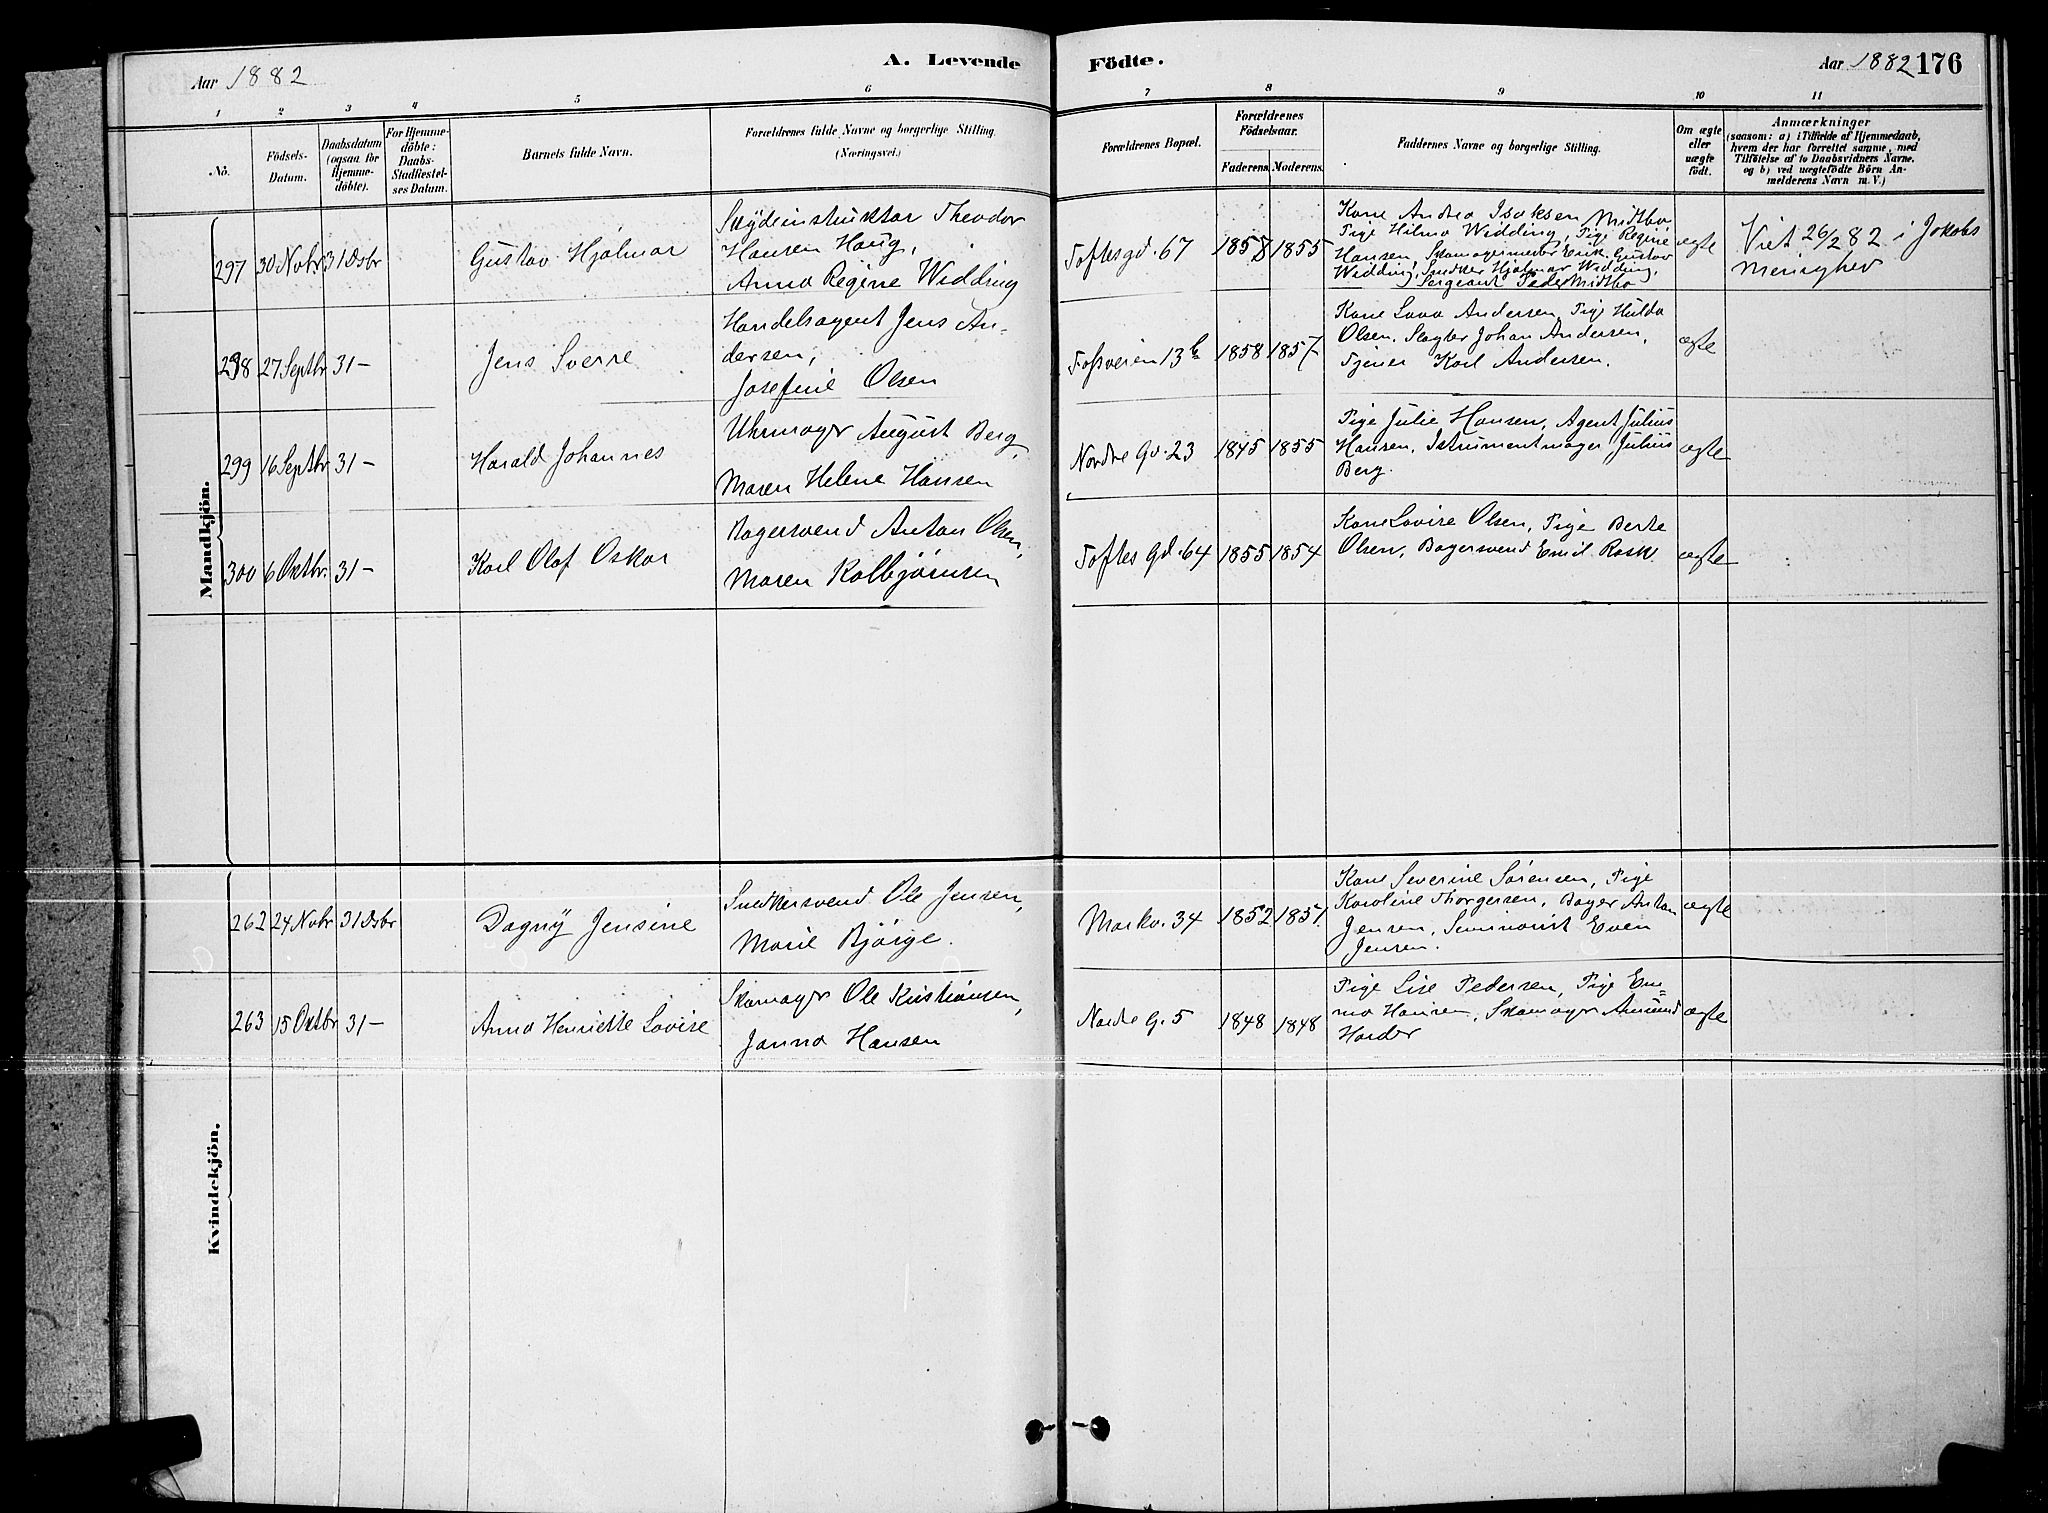 Aar 1882
A. Levende
Födte.
Aar 1882 176
1 2 3 4 5 6 7 8 9 10 11
No.
Födsels-
Datum.
Daabsdatum
(ogsaa for
Hjemme-
döbte).
For Hjemme-
döbte:
Daabs-
Stadfæstel-
ses Datum.
Barnets fulde Navn.
Forældrenes fulde Navne og borgerlige Stilling.
(Næringsvei.)
Forældrenes Bopæl.
Forældrenes
Födselsaar.
Faderens. Moderens.
Faddernes Navne og borgerlige Stilling.
Om ægte
eller
uægte
födt.
Anmærkninger
(saasom: a) i Tilfælde af Hjemmedaab,
hvem der har forrettet samme, med
Tilföielse af to Daabsvidners Navne.
og b) ved uægtefödte Börn An-
melderens Navn m.V.)
Mandkjön.
297 30 Novbr 31 Dsbr
Gustav Hjalmar
Skydeinstruktør Theodor
Hansen Haug,
Anna Regine Widding
Toftesgd. 67 1858 1855
Kone Andrea Isaksen Midtbo
Pige Hilma Widding, Pige Regine
Hansen, Skomagermester Erik Gustav
Widding, Snedker Hjalmar Widding,
Sergeant Peder Midtbo
ægte
Viet 26/2 82 i Jakobs
Menighed
298 27 Septbr 31 -
Jens Sverre
Handelsagent Jens An-
dersen,
Josefine Olsen
Fossveien 13 b 1858 1857
Kone Lava Andersen, Pige Hulda
Olsen, Slagter Johan Andersen,
Tjener Karl Andersen.
ægte
299 16 Septbr 31 -
Harald Johannes
Uhrmager August Berg,
Maren Helene Hansen
Nordre Gd. 23 1845 1855
Pige Julie Hansen, Agent Julius
Hansen, Istrumentmager Julius
Berg.
ægte
300 6 Oktbr. 31 -
Karl Olaf Oskar
Bagersvend Anton Olsen,
Maren Kolbjørnsen
Toftes Gd. 64 1855 1854
Kone Lovise Olsen, Pige Berte
Olsen, Bagersvend Emil Rask.
ægte
Kvindekjön.
262 24 Novbr 31 Dsbr
Dagny Jensine
Snedkersvend Ole Jensen,
Marie Bjørge.
Markv. 34 1852 1857.
Kone Severine Sørensen, Pige
Karoline Thorgersen, Bager Anton
Jensen, Seminarist Even
Jensen.
ægte
263 15 Oktbr 31 -
Anna Henriette Lovise
Skomager Ole Kristiansen,
Janna Hansen
Nordre G. 5 1848 1848
Pige Lise Pedersen, Pige Em=
ma Hansen, Skomager Amund
Harder
ægte